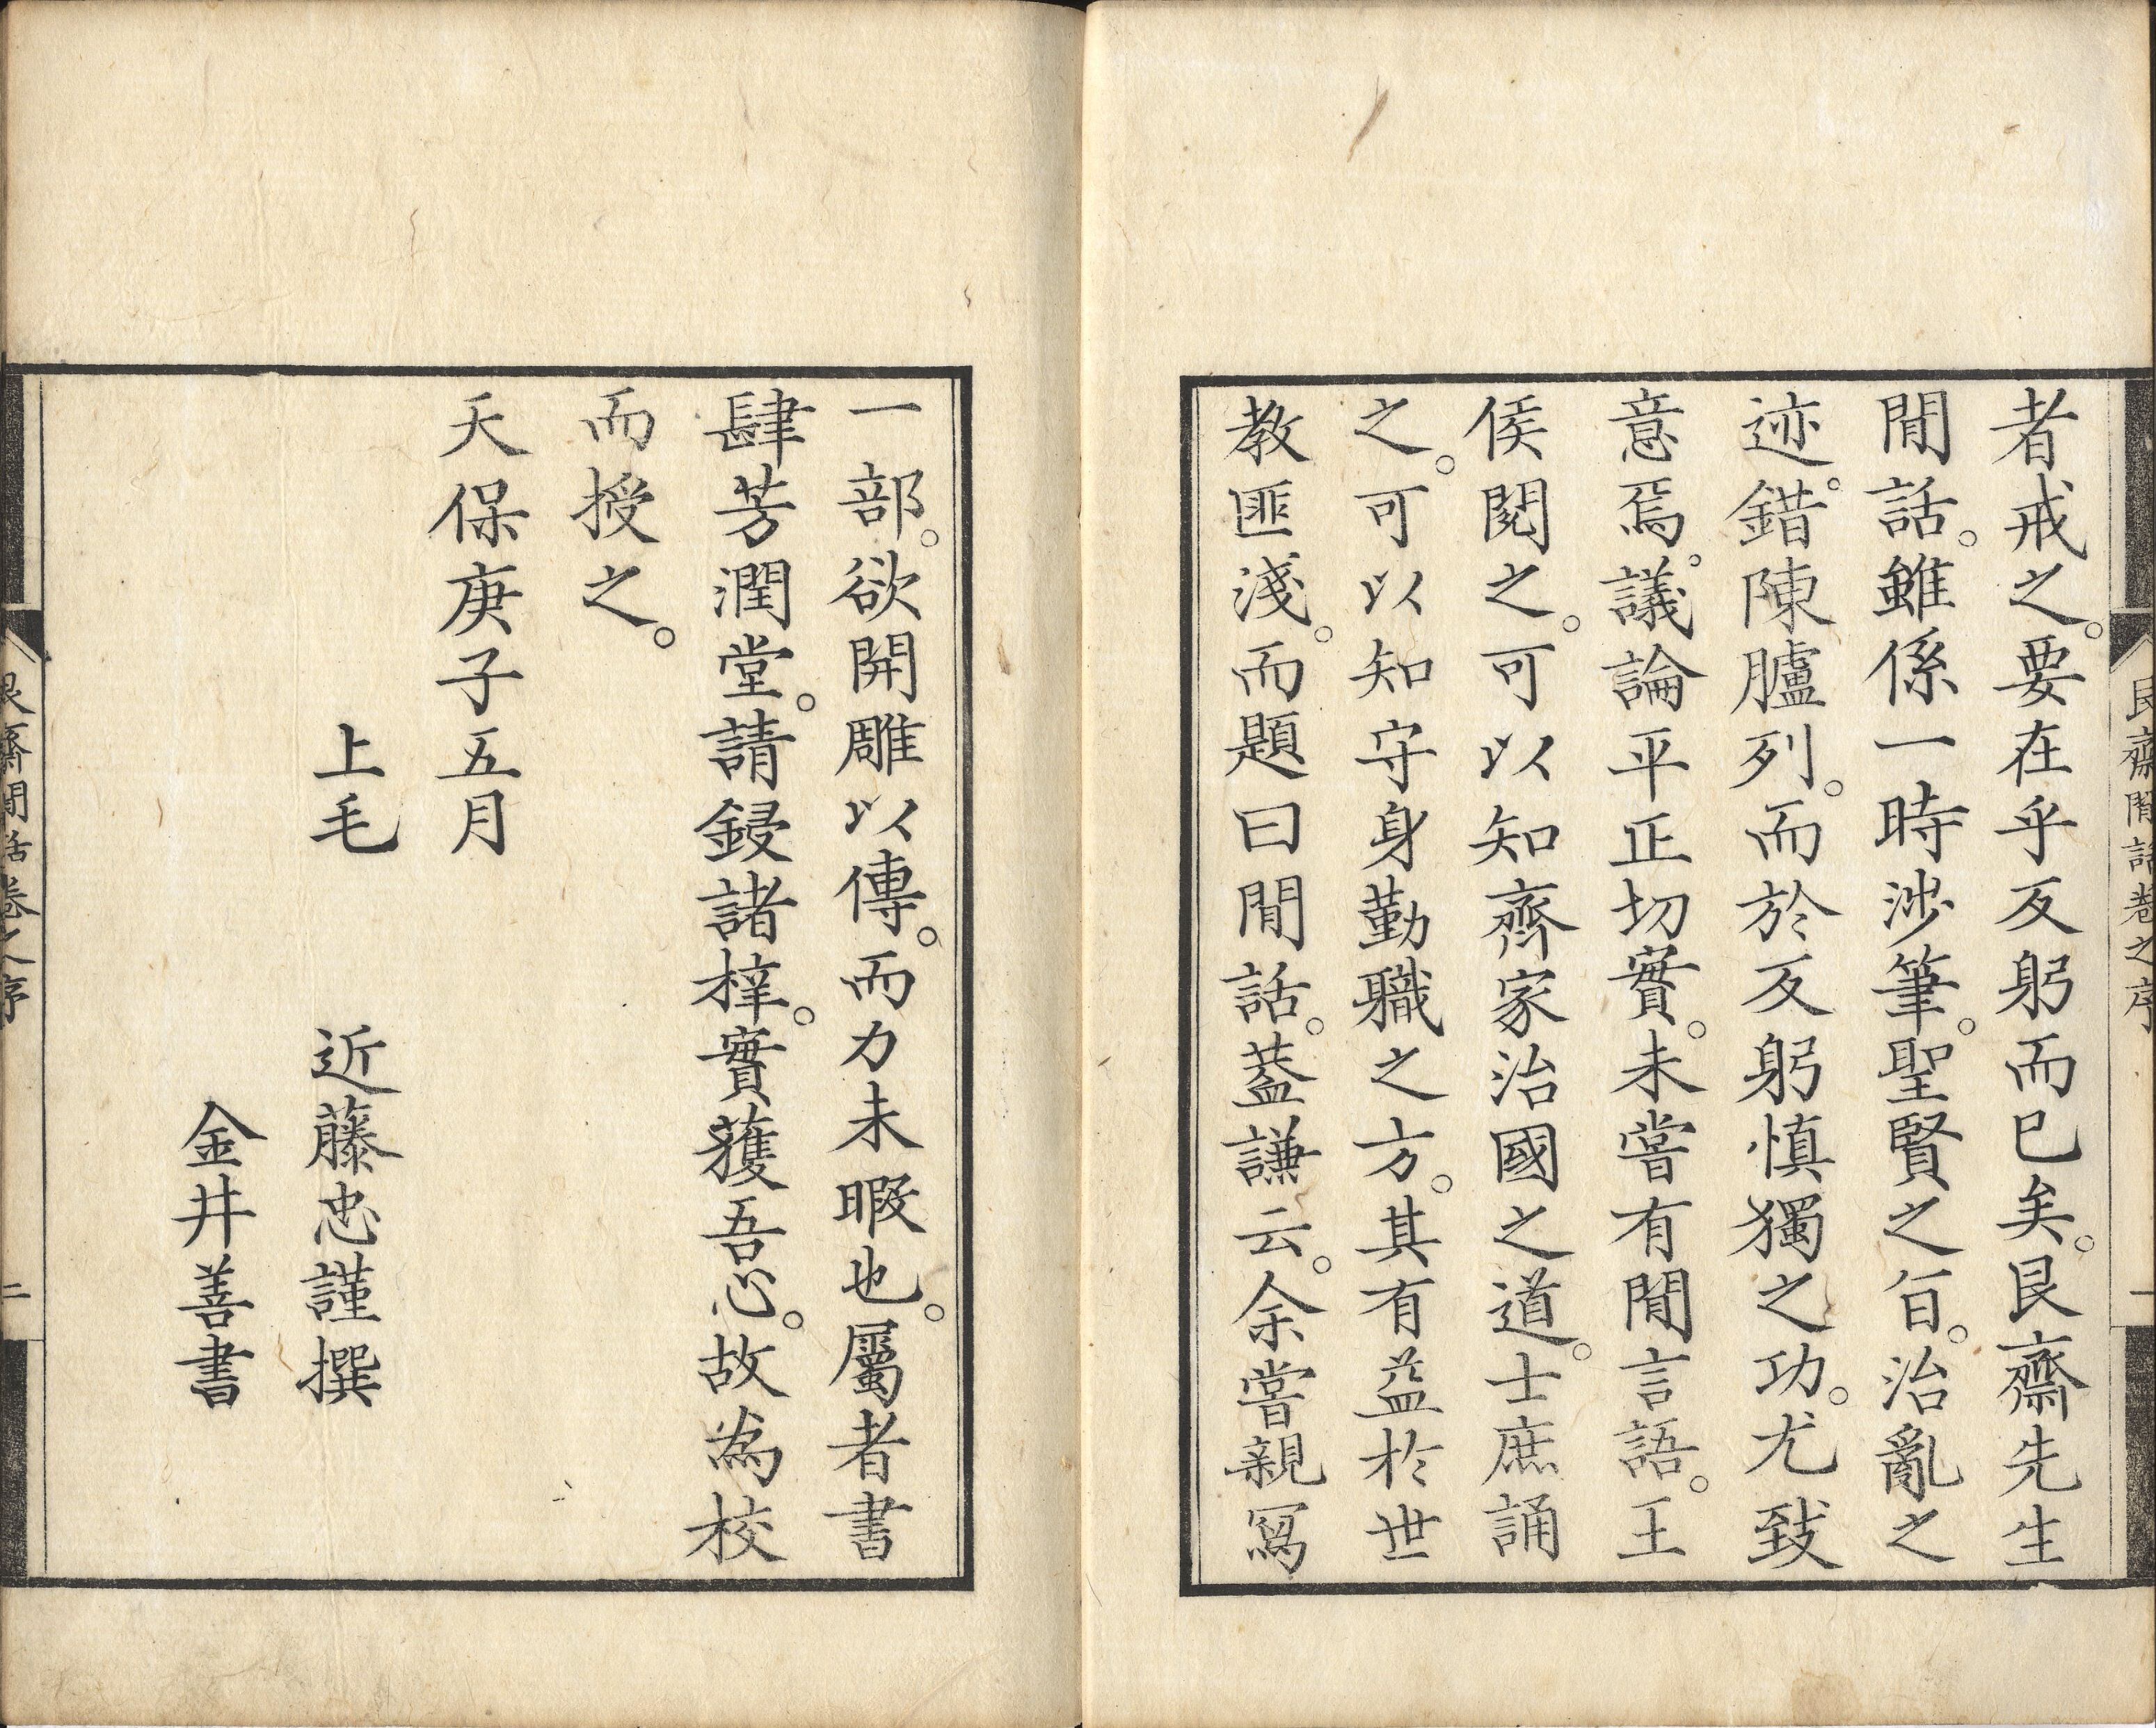 艮齋閒話卷之序
一
者戒之。要在乎反躬而已矣。艮齋先生
閒話。雖係一時涉筆。聖賢之旨。治亂之
迹。錯陳臚列。而於反躬慎獨之功。尤致
意焉。議論平正切實。未嘗有閒言語。王
侯閱之。可以知齊家治國之道。士庶誦
之。可以知守身勤職之方。其有益於世
教匪淺。而題曰閒話。蓋謙云。余嘗親寫
一部。欲開雕以傳。而力未暇也。屬者書
肆芳潤堂。請鋟諸梓。實獲吾心。故為校
而授之。
天保庚子五月
上毛 近藤忠謹撰
金井善書
艮齋閒話卷之序
二